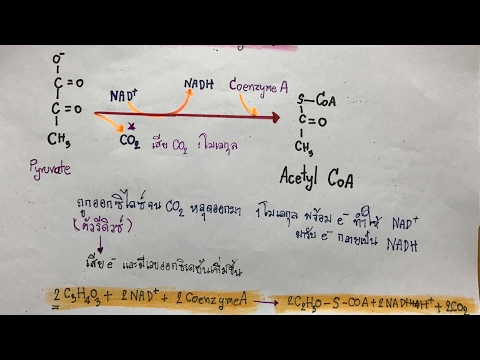 O⁻
C = O
C = O
CH₃
Pyruvate
NAD⁺
NADH
Coenzyme A
CO₂
เสีย CO₂ 1 โมเลกุล
S-CoA
C = O
CH₃
Acetyl CoA
ถูกออกซิไดซ์จน CO₂ หลุดออกมา 1 โมเลกุล พร้อม e⁻ ทำให้ NAD⁺
(ตัวรีดิวซ์)
มารับ e⁻ กลายเป็น NADH
เสีย e⁻ และมีเลขออกซิเดชันเพิ่มขึ้น
2C₃H₄O₃ + 2NAD⁺ + 2CoenzymeA → 2C₂H₃O-S-COA + 2NADH+H⁺ + 2CO₂